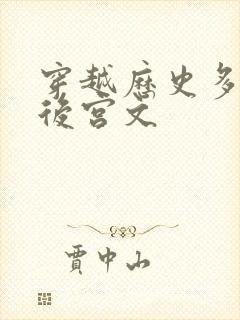 穿越歷史多
後宮文
賈中山